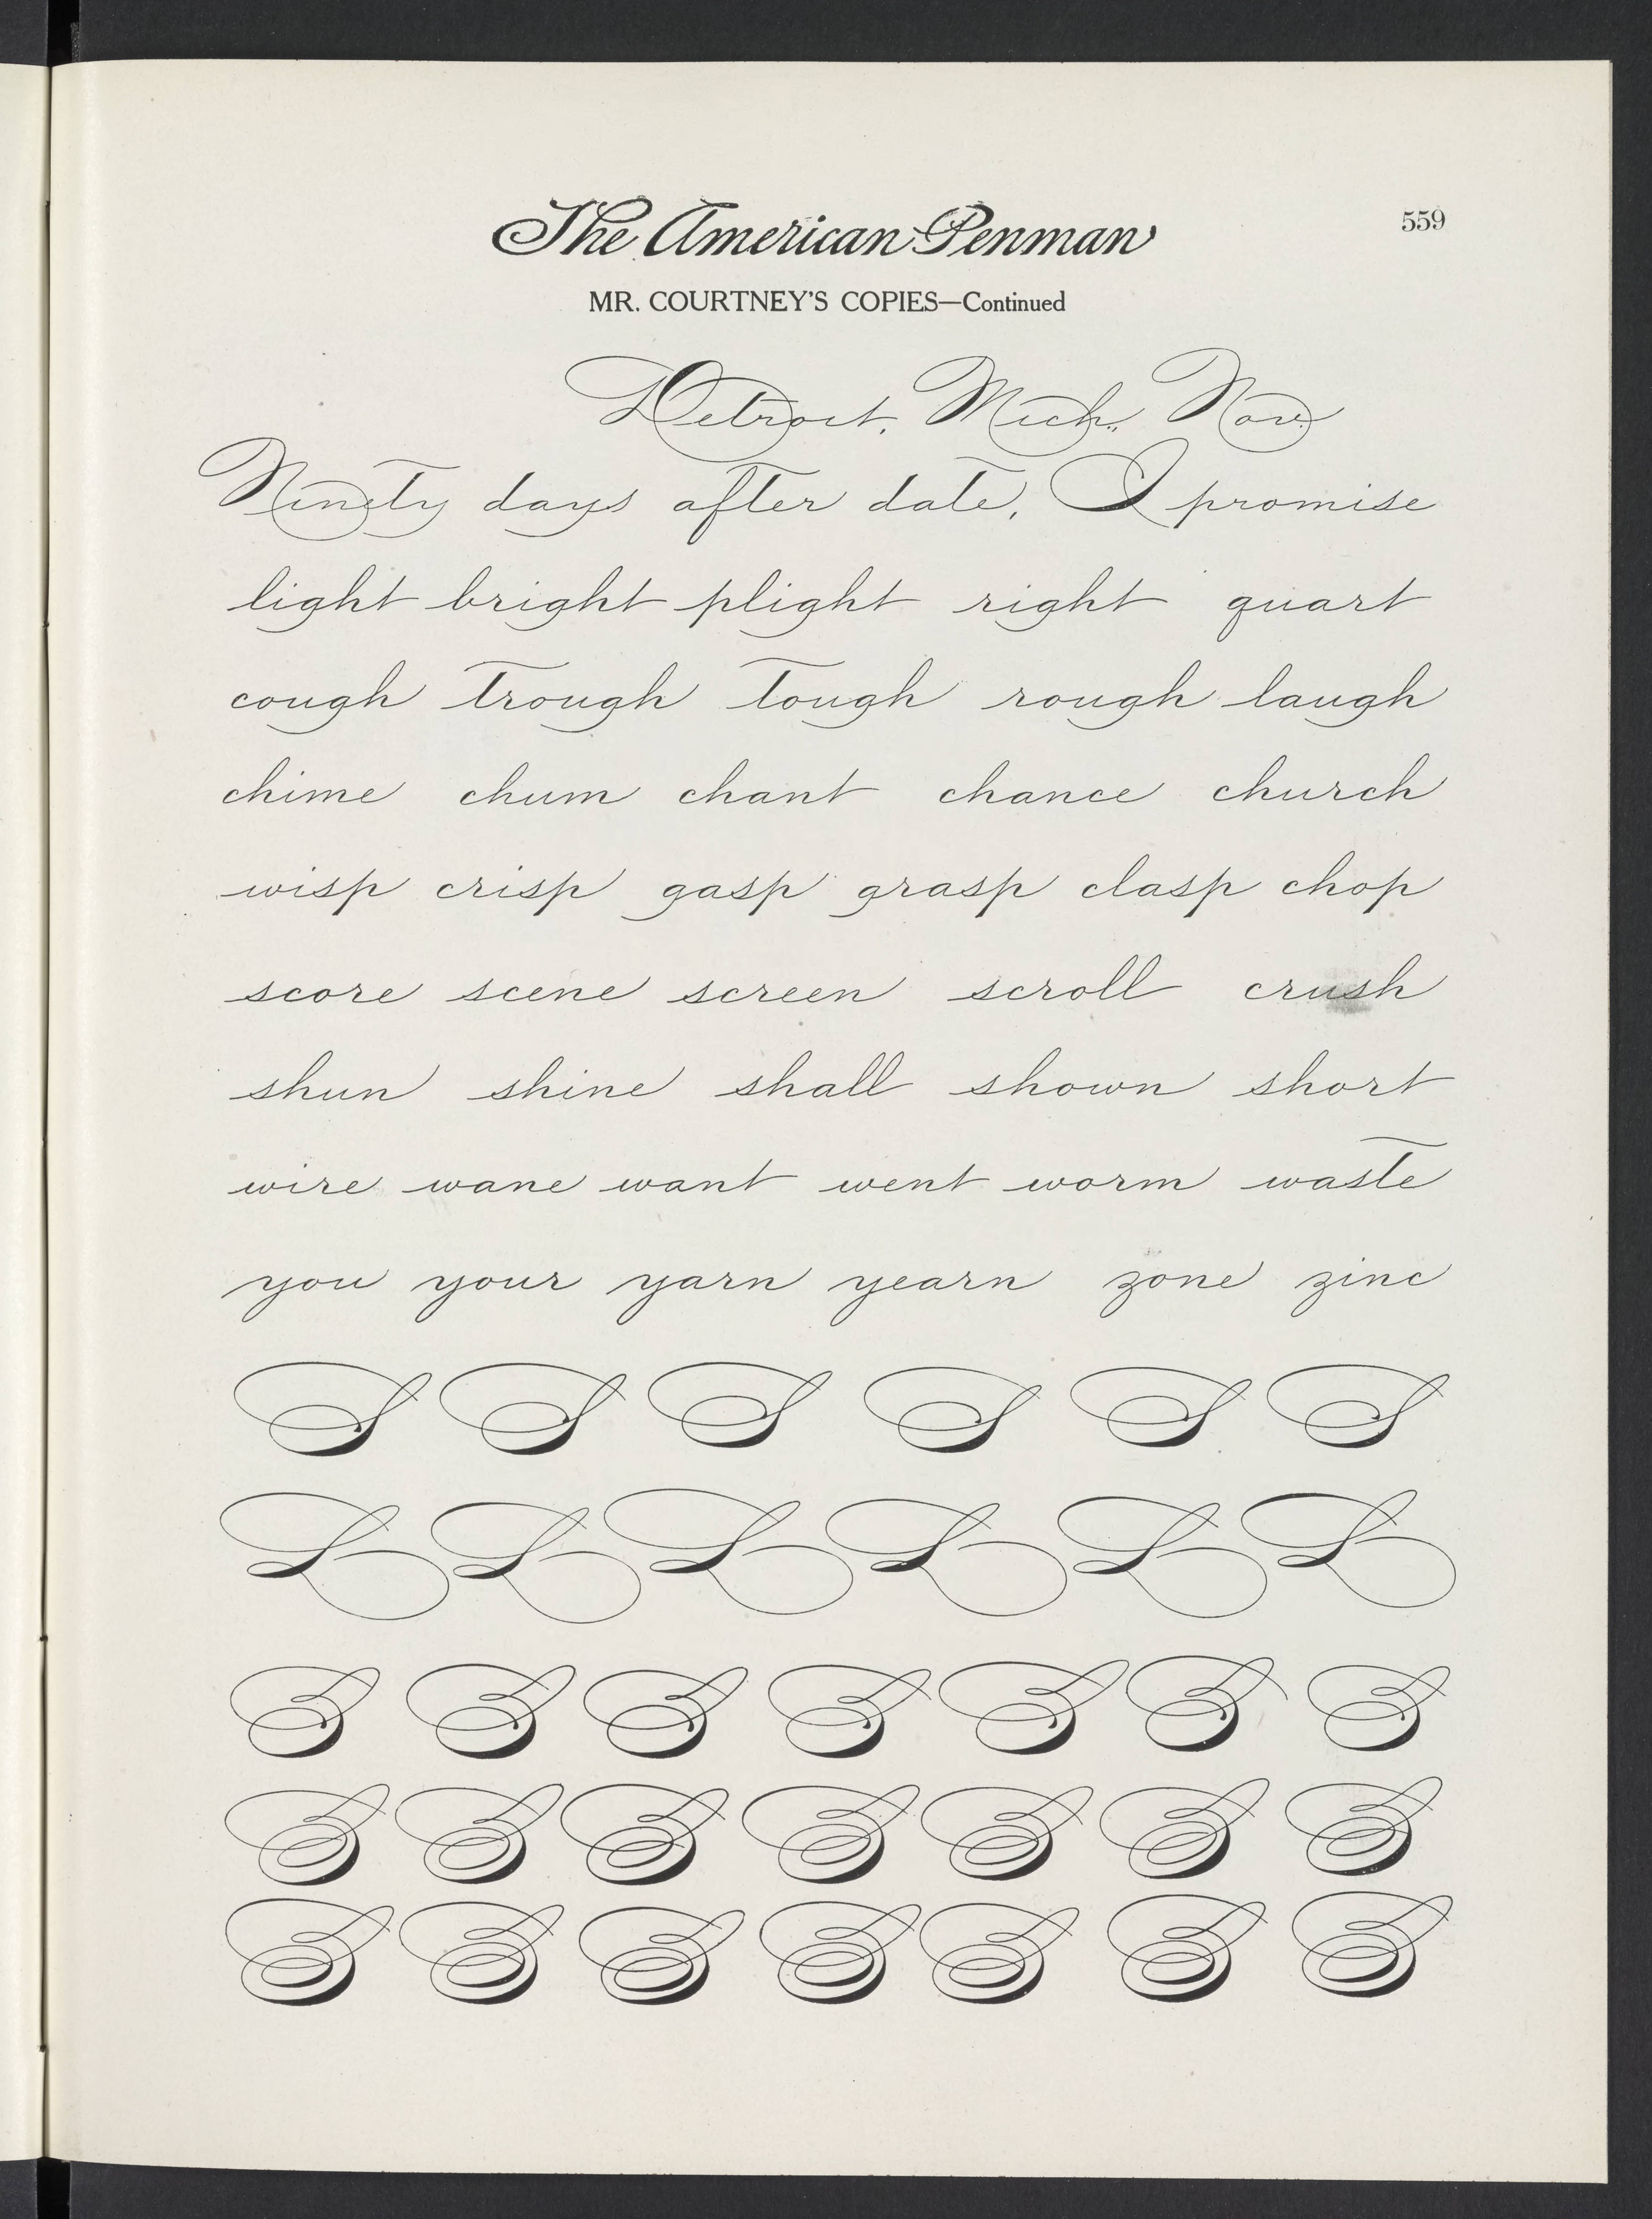 The American Penman
559
MR. COURTNEY'S COPIES—Continued
Detroit, Mich., Nov.
Ninety days after date, I promise
light bright plight right quart
cough trough tough rough laugh
chime chum chant chance church
wisp crisp gasp grasp clasp chop
score scene screen scroll crush
shun shine shall shown short
wire wane want went worm waste
you your yarn yearn zone zinc
S S S S S S
L L L L L L